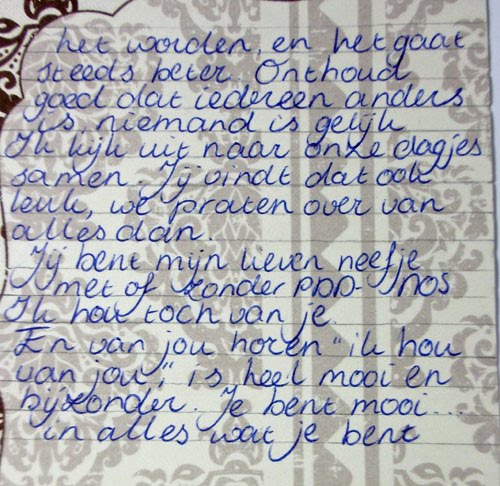 het worden, en het gaat
steeds beter. Onthoud
goed dat iedereen anders
is, niemand is gelijk
Ik kijk uit naar onze dagjes
samen. Jij vindt dat ook
leuk, we praten over van
alles dan.
Jij bent mijn lieven neefje
met of zonder PDD-NOS
Ik hou toch van je.
En van jou horen "ik hou
van jou", is heel mooi en
bijzonder. Je bent mooi....
in alles wat je bent